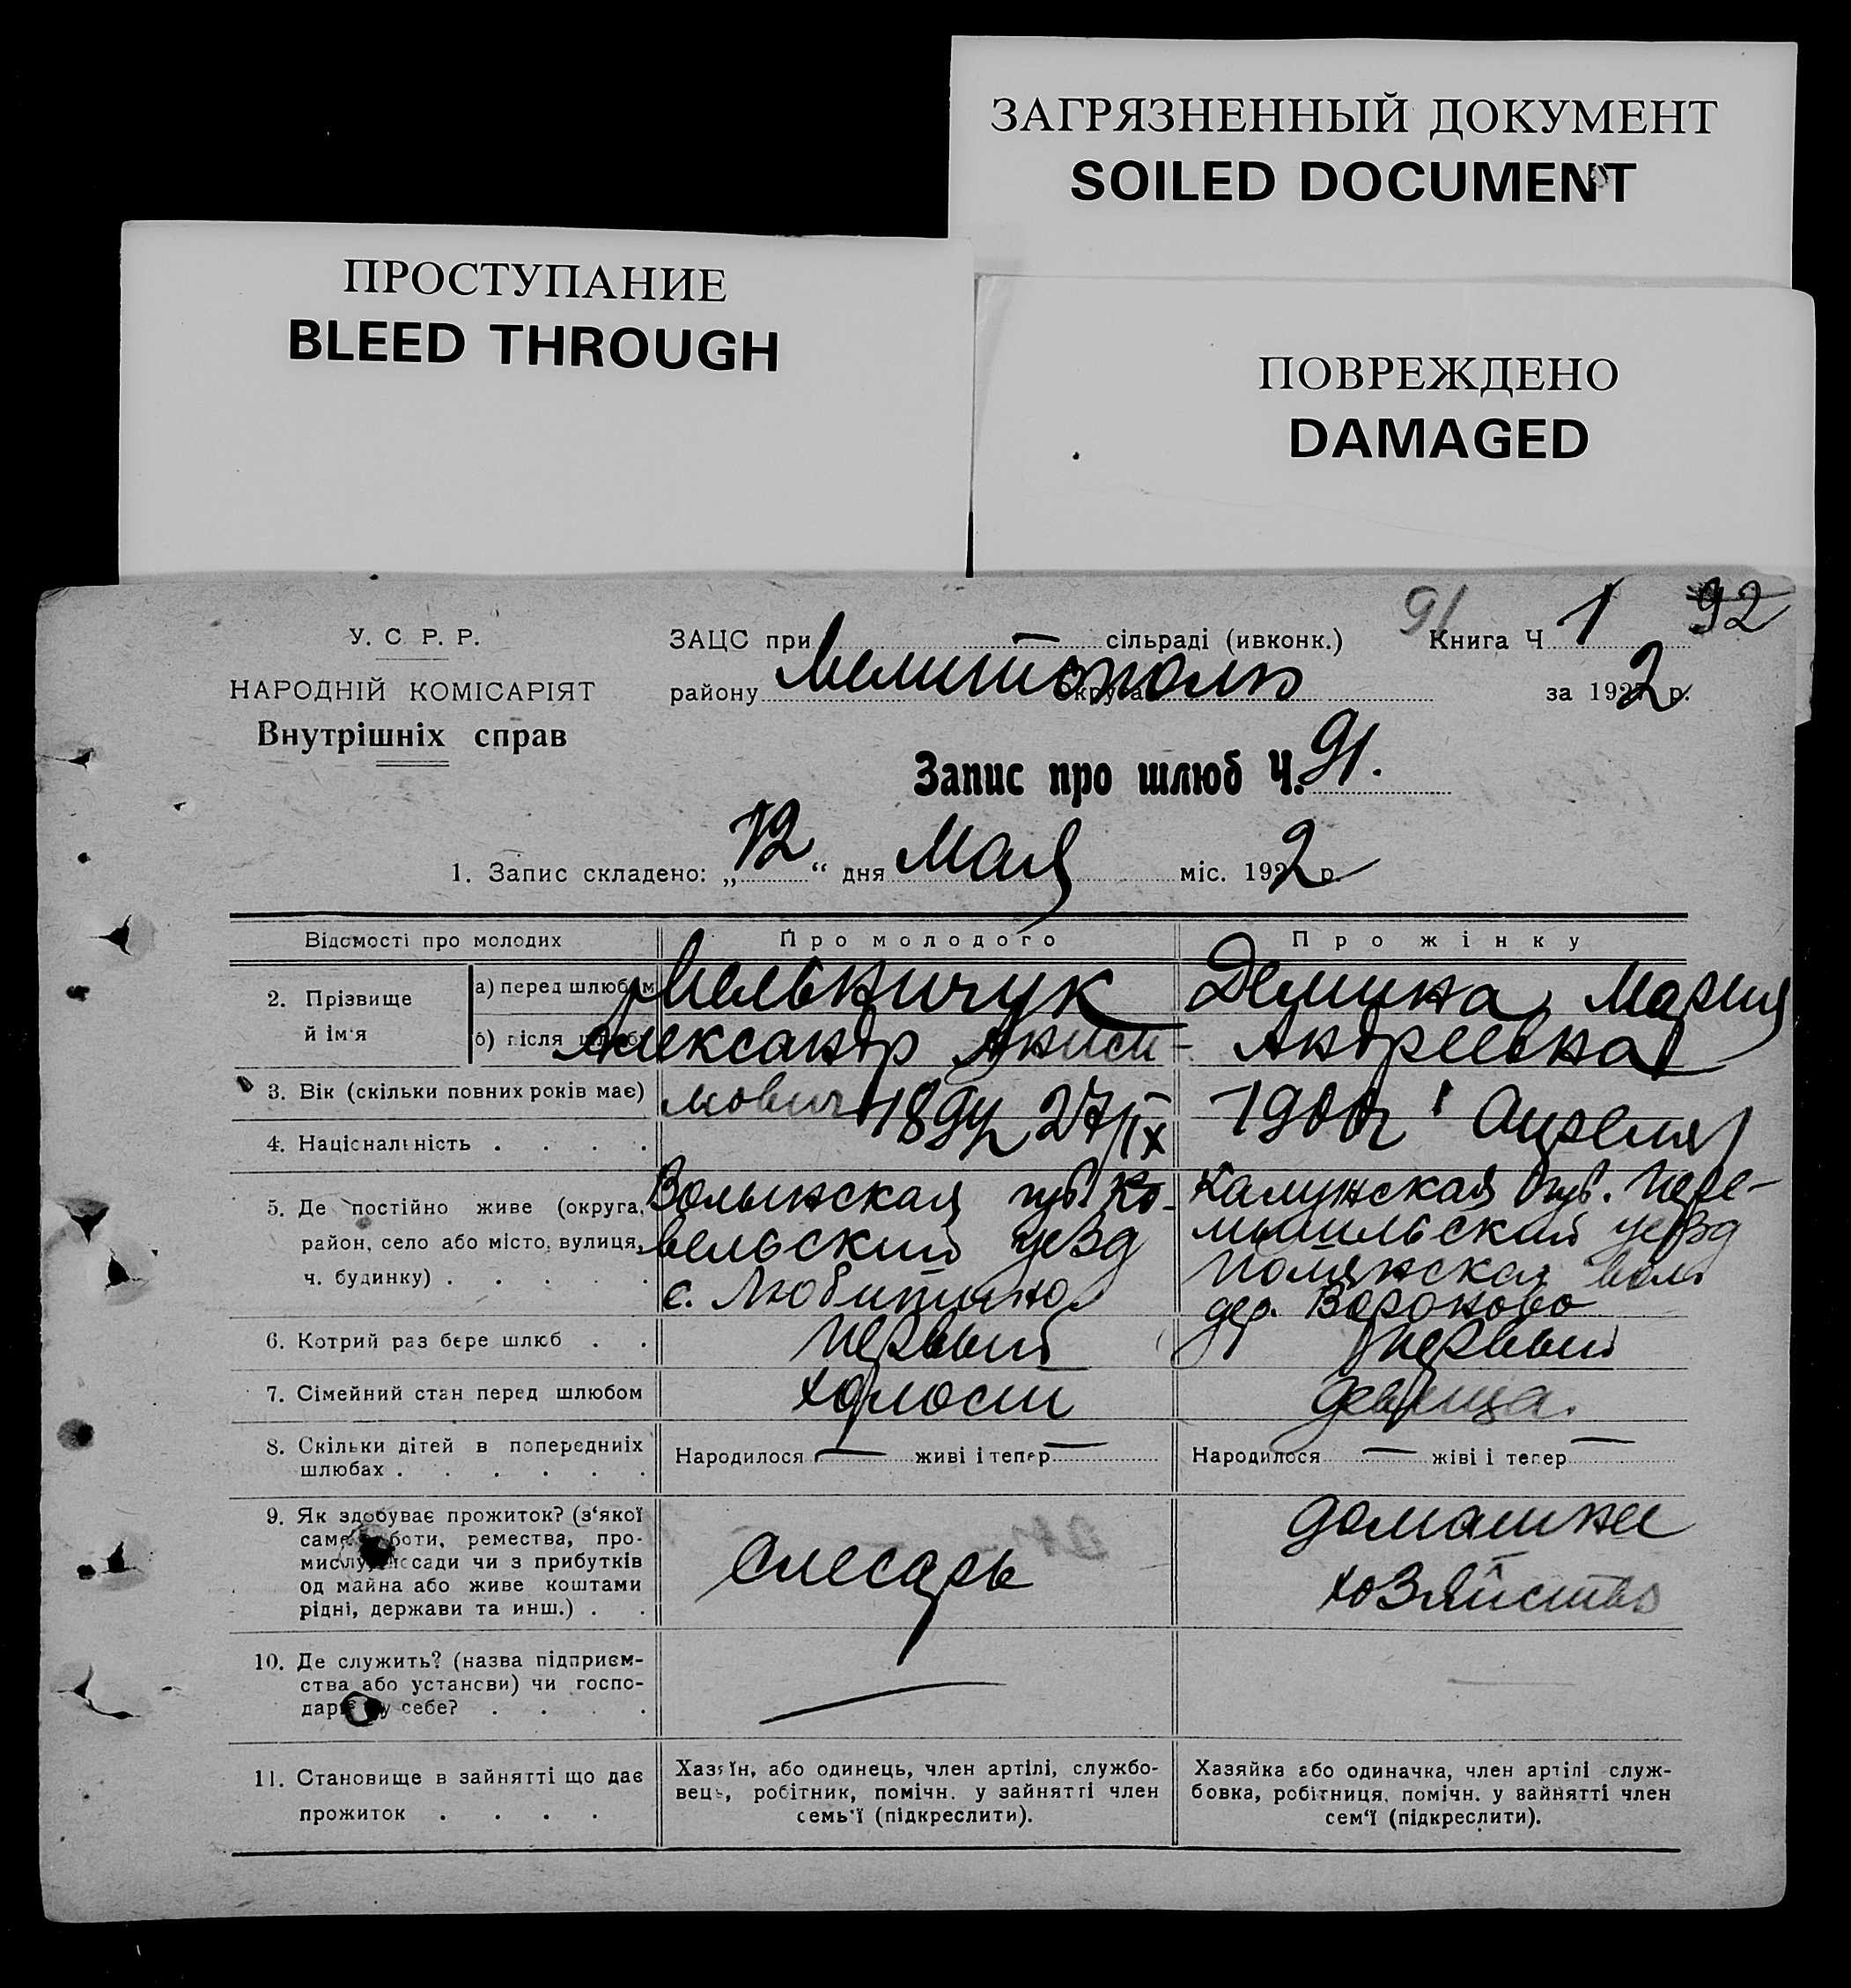 ЗАГРЯЗНЕННЫЙ ДОКУМЕНТ
SOILED DOCUMENT
ПРОСТУПАНИЕ
BLEED THROUGH
ПОВРЕЖДЕНО
DAMAGED
У. С. Р. Р.
НАРОДНІЙ КОМІСАРІЯТ
Внутрішніх справ
ЗАЦС при — сільраді (ивконк.)
91 Книга Ч 1 92
району Мелитополь округа за 1922 р.
Запис про шлюб Ч. 91.
1. Запис складено: „12“ дня Мая міс. 1922 р.
Відомості про молодих
Про молодого
Про жінку
2. Прізвище й ім'я
а) перед шлюбом
б) після шлюбу
Мельничук
Александр Аниси-
мович 189 27/IX
Демина Мария
Андреевна
1900г 1 Апреля
3. Вік (скільки повних років має)
4. Національність . . . .
5. Де постійно живе (округа,
район, село або місто, вулиця,
ч. будинку) . . . . .
Волынская губ. Ко-
вельский уезд
с. Любитыно
Калужская губ. Пере-
мышльский уезд
вол.
дер. Вороново
6. Котрий раз бере шлюб . .
первый
первый
7. Сімейний стан перед шлюбом
холост
девица.
8. Скільки дітей в попередниіх
шлюбах . . . . . .
Народилося — живі і тепер —
Народилося — жіві і тепер —
9. Як здобуває прожиток? (з‘якої
саме роботи, ремества, про-
мислу, посади чи з прибутків
од майна або живе коштами
рідні, держави та инш.) . .
слесарь
домашнее
хозяйство
10. Де служить? (назва підприєм-
ства або установи) чи госпо-
дарює у себе? . . . .
—
—
11. Становище в зайнятті що дає
прожиток . . . .
Хазяїн, або одинець, член артілі, службо-
вець, робітник, помічн. у зайнятті член
семь‘ї (підкреслити).
Хазяйка або одиначка, член артілі служ-
бовка, робітниця, помічн. у зайнятті член
сем‘ї (підкреслити).